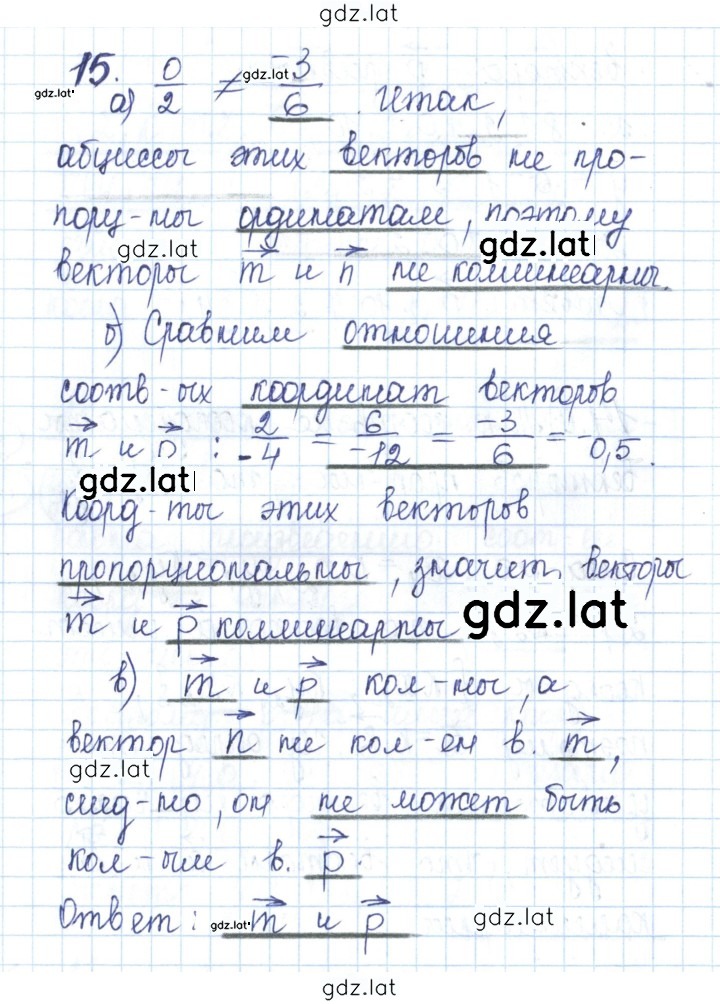 gdz.lat
15.
gdz.lat
gdz.lat
а) 0/2 ≠ -3/6. Итак,
абциссы этих векторов не про-
порц-ны ординатам, поэтому
gdz.lat
gdz.lat
векторы m и n не коллинеарны.
б) Сравним отношения
соотв-ых координат векторов
m и p : 2/-4 = 6/-12 = -3/6 = -0,5.
gdz.lat
Коорд-ты этих векторов
пропорциональны, значит векторы
m и p коллинеарны
gdz.lat
в) m и p кол-ны, а
вектор n не кол-ен в. m,
gdz.lat
след-но, он не может быть
кол-ым в. p.
Ответ: m и p
gdz.lat
gdz.lat
gdz.lat